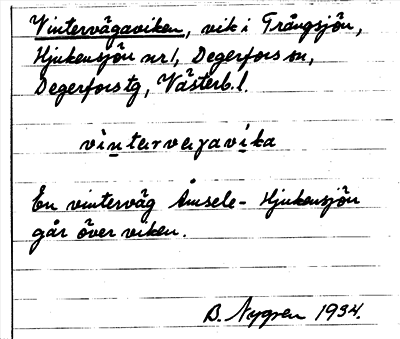 Vintervägaviken, vik i Trångsjön,
Hjukensjön nr 1, Degerfors sn,
Degerfors tg, Västerb. l.
vintervaɡavika
En vinterväg Åmsele - Hjukensjön
går över viken.
B. Nygren 1934.